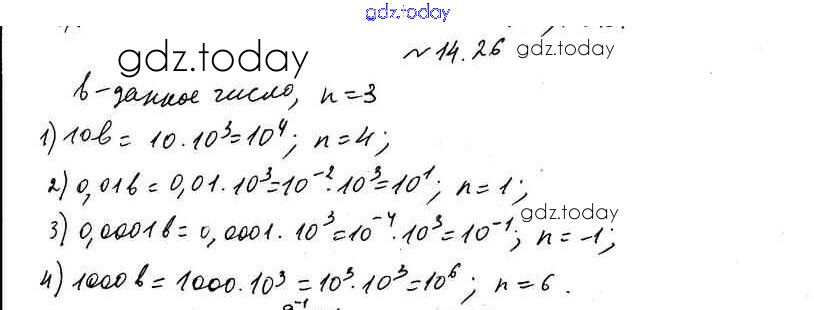 gdz.today
gdz.today
№14.26 gdz.today
b-данное число, n=3
1) 10b = 10·10³=10⁴; n=4;
2) 0,01b = 0,01·10³=10⁻²·10³=10¹; n=1;
gdz.today
3) 0,0001b = 0,0001·10³=10⁻⁴·10³=10⁻¹; n=-1;
4) 1000b = 1000·10³ = 10³·10³=10⁶; n=6.